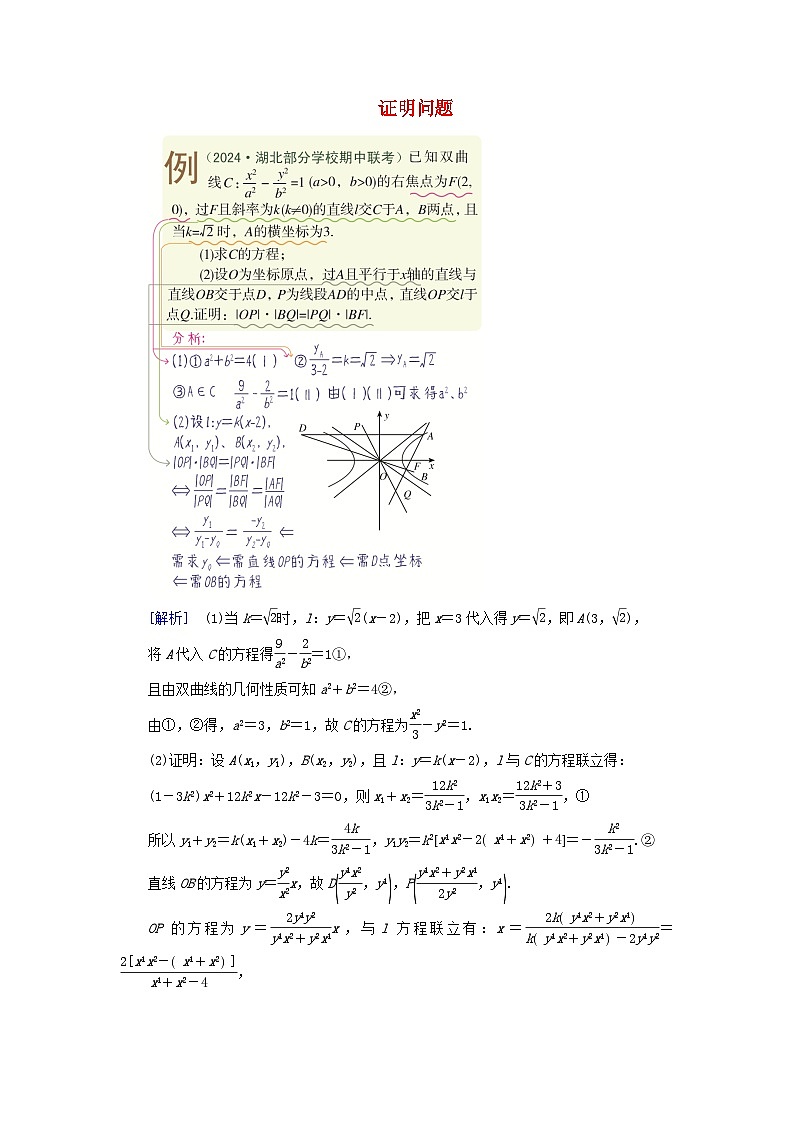 证明问题
例
(2024·湖北部分学校期中联考)已知双曲
线C:x²/a²-y²/b²=1(a>0,b>0)的右焦点为F(2,
0),过F且斜率为k(k≠0)的直线l交C于A,B两点,且
当k=√2时,A的横坐标为3.
(1)求C的方程;
(2)设O为坐标原点,过A且平行于x轴的直线与
直线OB交于点D,P为线段AD的中点,直线OP交l于
点Q.证明:|OP|·|BQ|=|PQ|·|BF|.
分析:
(1)①a²+b²=4(Ⅰ) ②y_A/(3-2)=k=√2⇒y_A=√2
③A∈C 9/a²-2/b²=1(Ⅱ) 由(Ⅰ)(Ⅱ)可求得a²、b²
(2)设l:y=k(x-2),
A(x₁,y₁)、B(x₂,y₂),
|OP|·|BQ|=|PQ|·|BF|
⇔|OP|/|PQ|=|BF|/|BQ|=|AF|/|AQ|
⇔y₁/(y₁-y₀)=-y₂/(y₂-y₀)⇐
需求y₀⇐需直线OP的方程⇐需D点坐标
⇐需OB的方程
y
D
P
A
F
x
O
B
Q
[解析] (1)当k=√2时,l:y=√2(x-2),把x=3代入得y=√2,即A(3,√2),
将A代入C的方程得9/a²-2/b²=1①,
且由双曲线的几何性质可知a²+b²=4②,
由①,②得,a²=3,b²=1,故C的方程为x²/3-y²=1.
(2)证明:设A(x₁,y₁),B(x₂,y₂),且l:y=k(x-2),l与C的方程联立得:
(1-3k²)x²+12k²x-12k²-3=0,则x₁+x₂=12k²/(3k²-1),x₁x₂=(12k²+3)/(3k²-1),①
所以y₁+y₂=k(x₁+x₂)-4k=4k/(3k²-1),y₁y₂=k²[x¹x²-2( x¹+x²) +4]=-k²/(3k²-1).②
直线OB的方程为y=(y²/x²)x,故D(y¹x²/y²,y¹),P((y¹x²+y²x¹)/2y²,y¹).
OP的方程为y=(2y¹y²/(y¹x²+y²x¹))x,与l方程联立有:x=2k( y¹x²+y²x¹)/(k( y¹x²+y²x¹) -2y¹y²)=
2[x¹x²-( x¹+x²) ]/(x¹+x²-4),